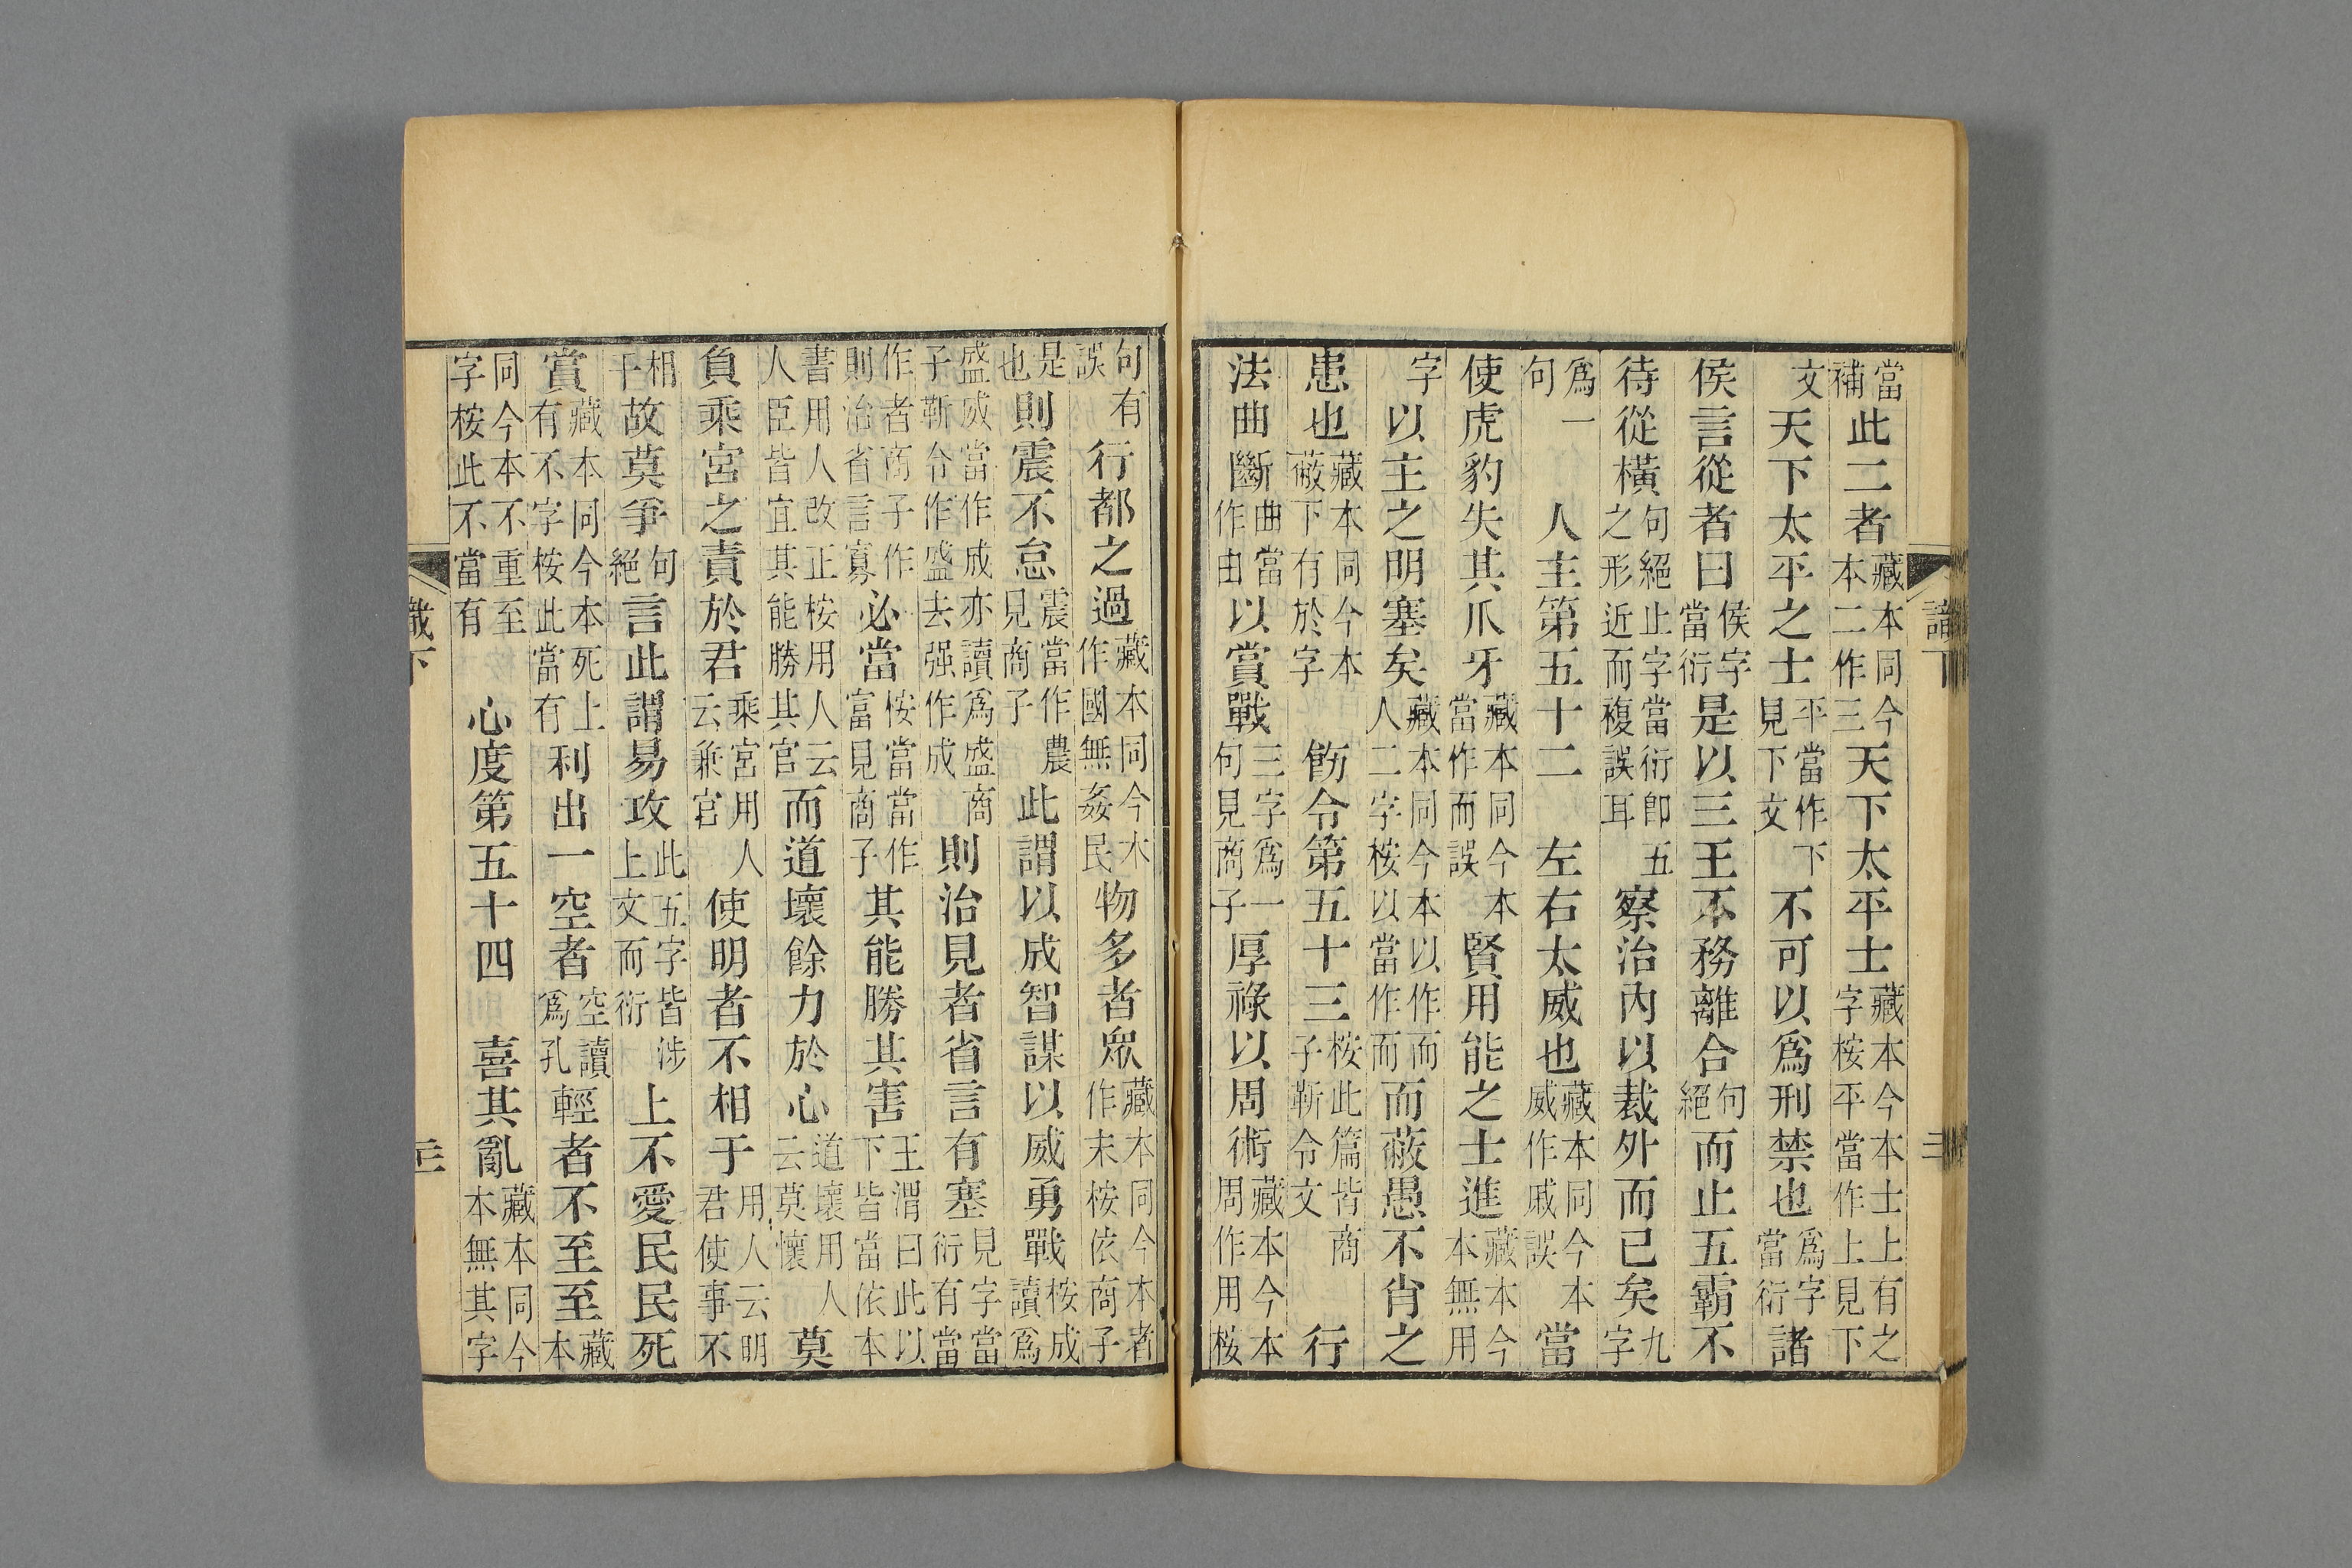 當補此二者藏本同今本二作三天下太平士藏本今本士上有之字桉平當作上見下
文天下太平之士平當作下見下文不可以爲刑禁也爲字當衍諸
侯言從者曰侯字當衍是以三王不務離合句絕而止五霸不
待從橫句絕止字當衍即五之形近而複誤耳察治內以裁外而已矣九字
爲一句 人主第五十二 左右太威也藏本同今本威作戚誤當
使虎豹失其爪牙藏本同今本當作而誤賢用能之士進藏本今本無用
字以主之明塞矣藏本同今本以作而人二字桉以當作而而蔽愚不肖之
患也藏本同今本蔽下有於字 飭令第五十三桉此篇皆商子靳令文 行
法曲斷曲當作由以賞戰三字爲一句見商子厚祿以周術藏本今本周作用桉
句有誤行都之過藏本同今本作國無姦民物多者眾藏本同今本者作末桉依商子
是也則震不怠震當作農見商子此謂以成智謀以威勇戰桉成讀爲
盛威當作成亦讀爲盛商子靳令作盛去强作成則治見者省言有塞見字當衍有當
作者商子作則治省言寡必當桉當當作富見商子其能勝其害王渭曰此以下皆當依本
書用人改正桉用人云人臣皆宜其能勝其官而道壞餘力於心道壞用人云莫懷莫
負乘宮之責於君乘宮用人云兼官使明者不相于用人云明君使事不
相干故莫爭句絕言此謂易攻此五字皆涉上文而衍上不愛民民死
賞藏本同今本死上有不字桉此當有利出一空者空讀爲孔輕者不至至藏本
同今本不重至字桉此不當有 心度第五十四 喜其亂藏本同今本無其字